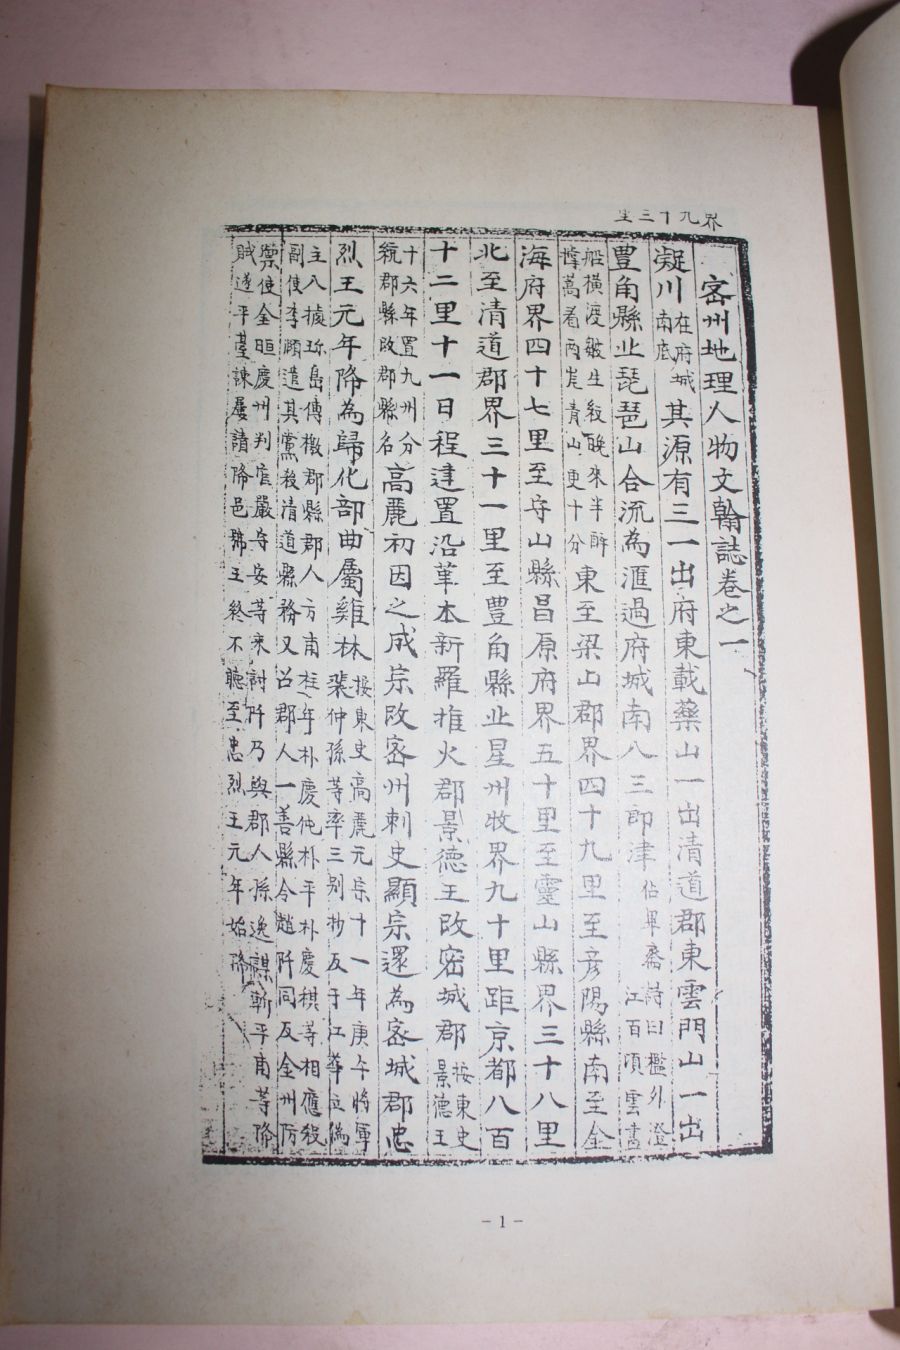 界九十三里
密州地理人物文翰誌卷之一
凝川在府城南底其源有三一出府東載藥山一出清道郡東雲門山一出
豊角縣北琵琶山合流為滙過府城南八三郎津佔畢齋詩曰檻外澄江百頃雲畫
船橫渡皺生紋晚來半醉篙看兩岸青山更十分東至梁山郡界四十九里至彦陽縣南至金
海府界四十七里至守山縣昌原府界五十里至靈山縣界三十八里
北至清道郡界三十一里至豊角縣北星州牧界九十里距京都八百
十二里十一日程建置沿革本新羅推火郡景德王改密城郡按東史景德王
十六年置九州分統郡縣改郡縣名高麗初因之成宗改密州刺史顯宗還為密城郡忠
烈王元年降為歸化部曲屬雞林按東史高麗元宗十一年庚午將軍裴仲孫等率三別抄反于江華立偽
主入據珍島傳檄郡縣郡人方甫桂年朴慶仲朴平朴慶棋等相應殺副使李頤遣其黨殺清道縣務又召郡人一善縣令趙阡同反金州防
禦使金晅慶州判官嚴守安等來討阡乃與郡人孫逸謀斬平甫等降賊遂平臺諫屢請降邑號王終不聽至忠烈王元年始降
- 1 -